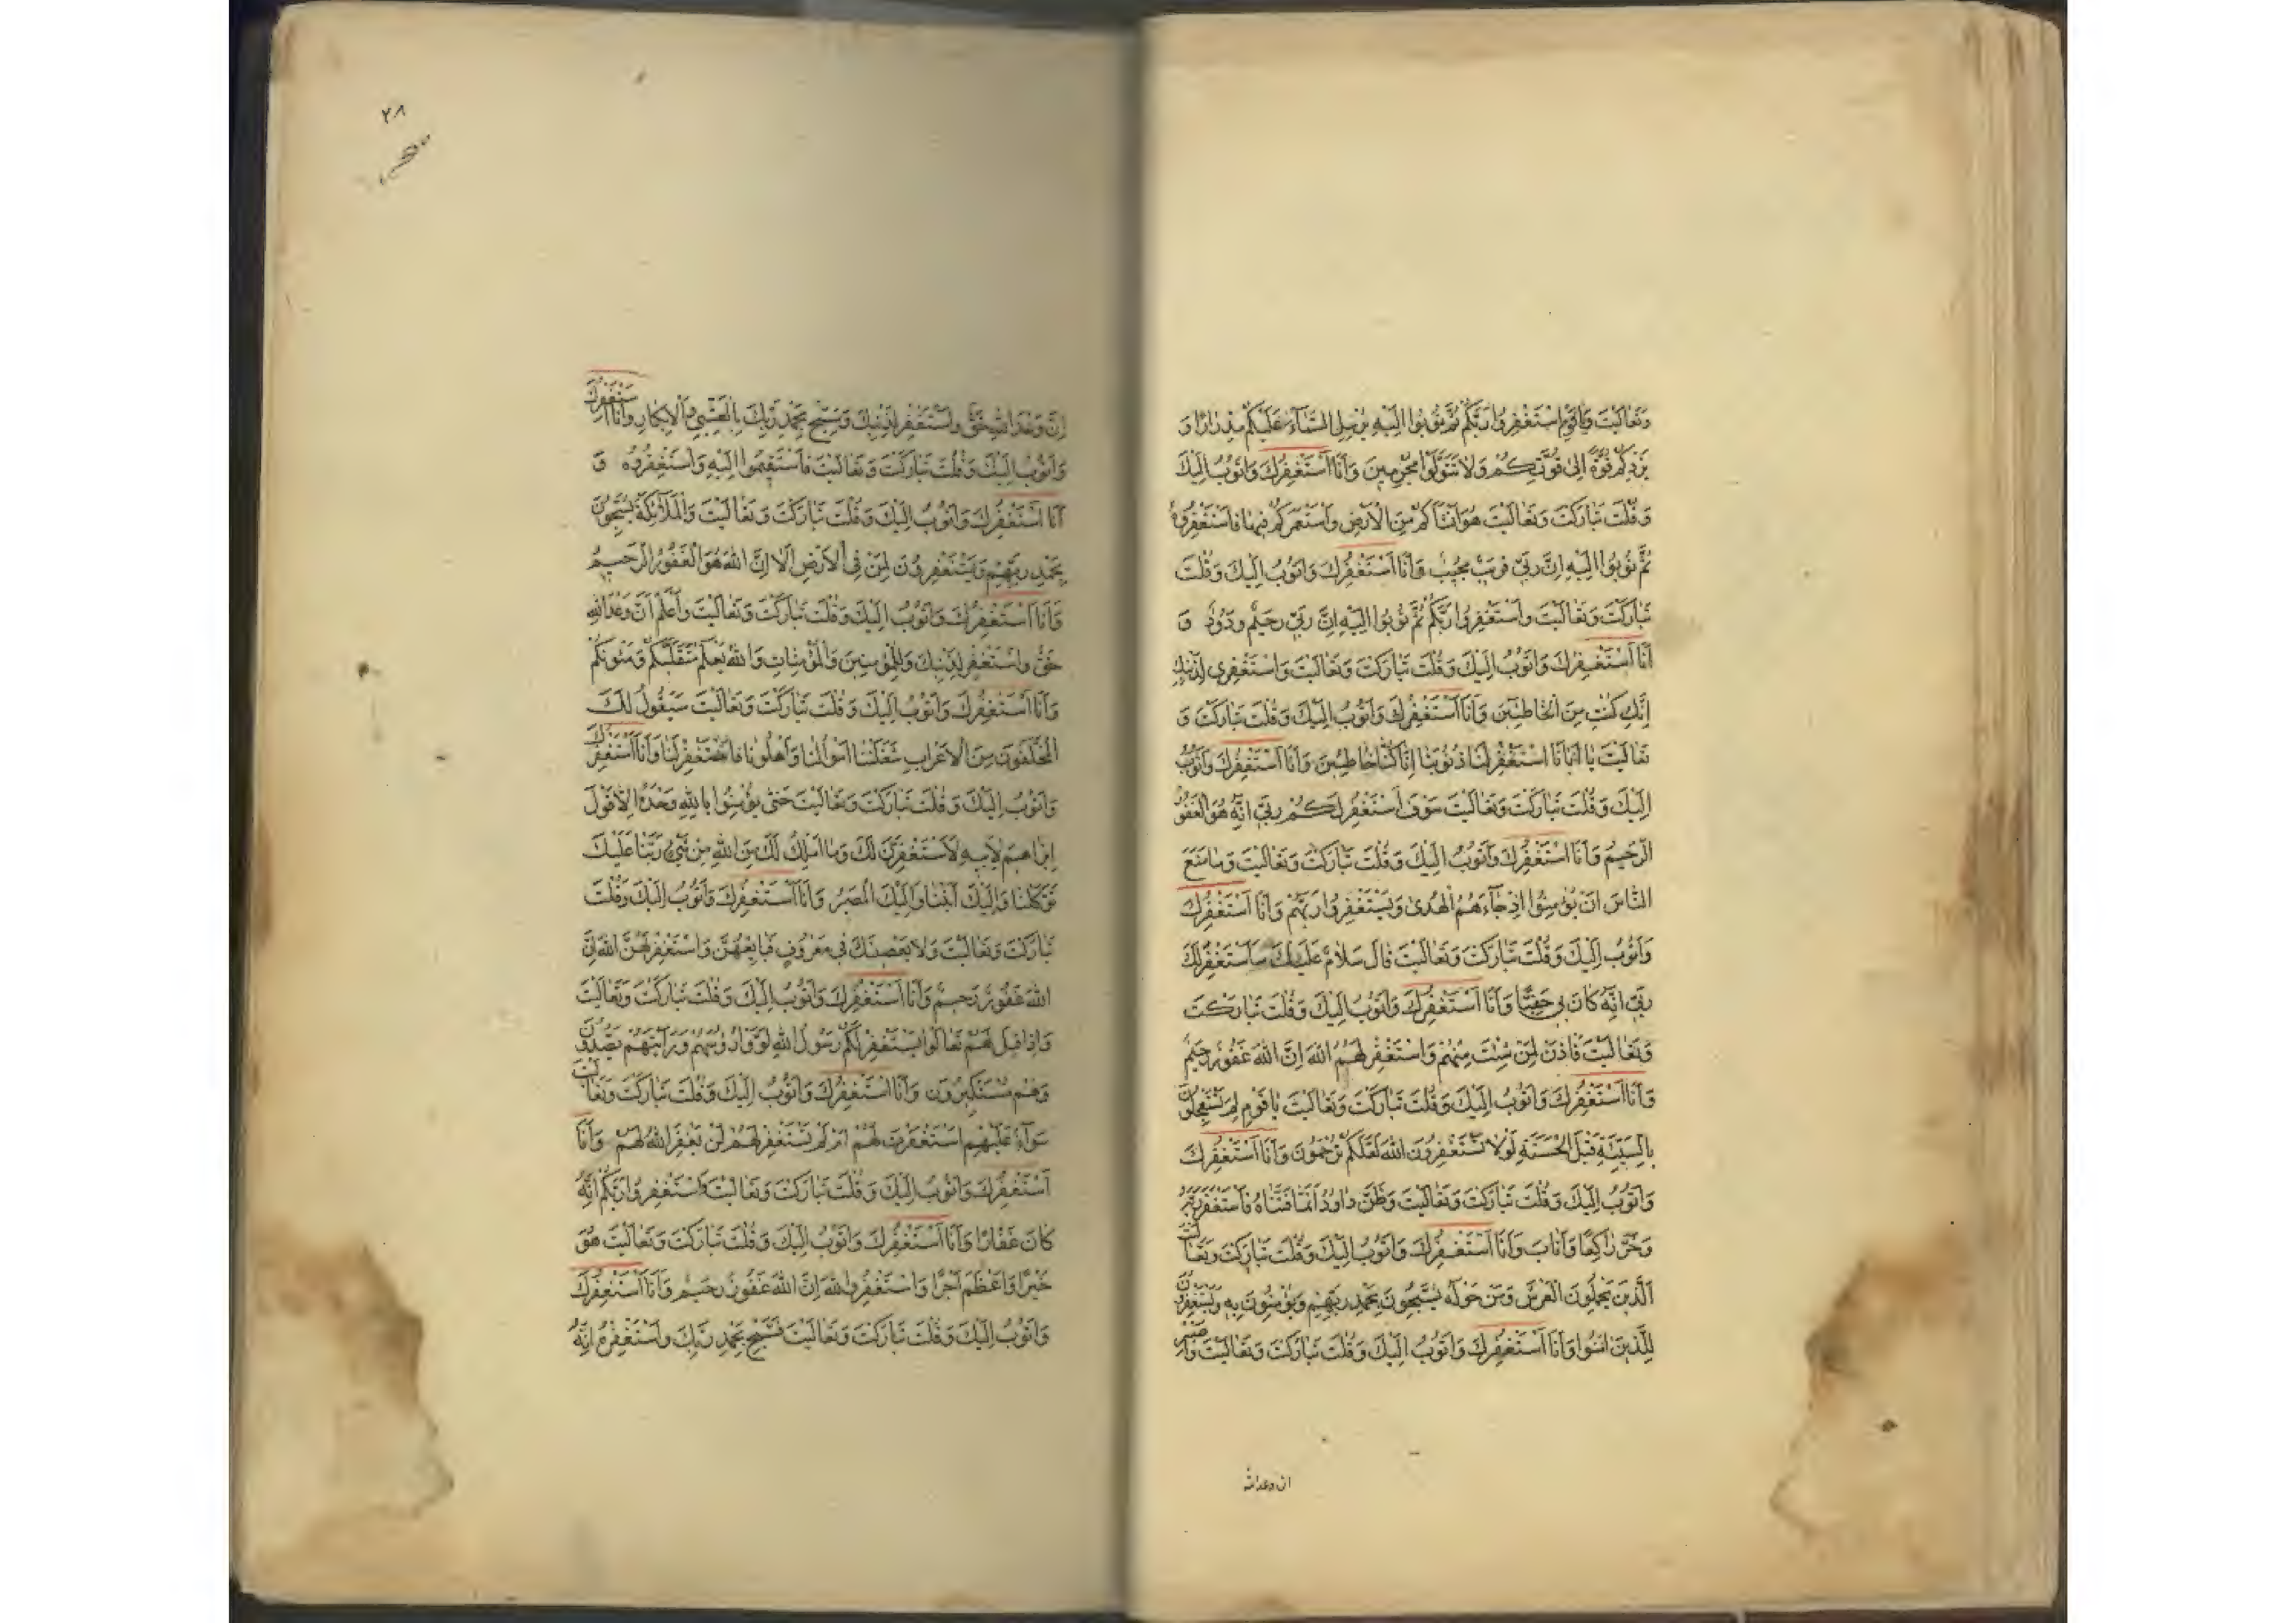 وَتَعٰالَيْتَ وَيٰاقَوْمِ اسْتَغْفِرُوا رَبَّكُمْ ثُمَّ تُوبُوا اِلَيْهِ يُرْسِلِ السَّمٰآءَ عَلَيْكُمْ مِدْرٰارًا وَ
يَزِدْكُمْ قُوَّةً اِلىٰ قُوَّتِكُمْ وَلٰا تَتَوَلَّوْا مُجْرِمِينَ وَاَنَا اَسْتَغْفِرُكَ وَاَتُوبُ اِلَيْكَ
وَقُلْتَ تَبٰارَكْتَ وَتَعٰالَيْتَ هُوَ اَنْشَاَكُمْ مِنَ الْاَرْضِ وَاسْتَعْمَرَكُمْ فِيهٰا فَاسْتَغْفِرُوهُ
ثُمَّ تُوبُوا اِلَيْهِ اِنَّ رَبّى قَرِيبٌ مُجِيبٌ وَاَنَا اَسْتَغْفِرُكَ وَاَتُوبُ اِلَيْكَ وَقُلْتَ
تَبٰارَكْتَ وَتَعٰالَيْتَ وَاسْتَغْفِرُوا رَبَّكُمْ ثُمَّ تُوبُوا اِلَيْهِ اِنَّ رَبّى رَحِيمٌ وَدُودٌ وَ
اَنَا اَسْتَغْفِرُكَ وَاَتُوبُ اِلَيْكَ وَقُلْتَ تَبٰارَكْتَ وَتَعٰالَيْتَ وَاسْتَغْفِرى لِذَنْبِكِ
اِنَّكِ كُنْتِ مِنَ الْخٰاطِئِينَ وَاَنَا اَسْتَغْفِرُكَ وَاَتُوبُ اِلَيْكَ وَقُلْتَ تَبٰارَكْتَ وَ
تَعٰالَيْتَ يٰا اَبٰانَا اسْتَغْفِرْ لَنٰا ذُنُوبَنٰا اِنّٰا كُنّٰا خٰاطِئِينَ وَاَنَا اَسْتَغْفِرُكَ وَاَتُوبُ
اِلَيْكَ وَقُلْتَ تَبٰارَكْتَ وَتَعٰالَيْتَ سَوْفَ اَسْتَغْفِرُ لَكُمْ رَبّى اِنَّهُ هُوَ الْغَفُورُ
الرَّحِيمُ وَاَنَا اَسْتَغْفِرُكَ وَاَتُوبُ اِلَيْكَ وَقُلْتَ تَبٰارَكْتَ وَتَعٰالَيْتَ وَمٰا مَنَعَ
النّٰاسَ اَنْ يُؤْمِنُوا اِذْ جٰآءَهُمُ الْهُدىٰ وَيَسْتَغْفِرُوا رَبَّهُمْ وَاَنَا اَسْتَغْفِرُكَ
وَاَتُوبُ اِلَيْكَ وَقُلْتَ تَبٰارَكْتَ وَتَعٰالَيْتَ قٰالَ سَلٰامٌ عَلَيْكَ سَاَسْتَغْفِرُ لَكَ
رَبّى اِنَّهُ كٰانَ بى حَفِيًّا وَاَنَا اَسْتَغْفِرُكَ وَاَتُوبُ اِلَيْكَ وَقُلْتَ تَبٰارَكْتَ
وَتَعٰالَيْتَ فَاْذَنْ لِمَنْ شِئْتَ مِنْهُمْ وَاسْتَغْفِرْ لَهُمُ اللهَ اِنَّ اللهَ غَفُورٌ رَحِيمٌ
وَاَنَا اَسْتَغْفِرُكَ وَاَتُوبُ اِلَيْكَ وَقُلْتَ تَبٰارَكْتَ وَتَعٰالَيْتَ يٰا قَوْمِ لِمَ تَسْتَعْجِلُونَ
بِالسَّيِّئَةِ قَبْلَ الْحَسَنَةِ لَوْلٰا تَسْتَغْفِرُونَ اللهَ لَعَلَّكُمْ تُرْحَمُونَ وَاَنَا اَسْتَغْفِرُكَ
وَاَتُوبُ اِلَيْكَ وَقُلْتَ تَبٰارَكْتَ وَتَعٰالَيْتَ وَظَنَّ دٰاوُدُ اَنَّمٰا فَتَنّٰاهُ فَاسْتَغْفَرَ رَبَّهُ
وَخَرَّ رٰاكِعًا وَاَنٰابَ وَاَنَا اَسْتَغْفِرُكَ وَاَتُوبُ اِلَيْكَ وَقُلْتَ تَبٰارَكْتَ وَتَعٰالَيْتَ
الَّذِينَ يَحْمِلُونَ الْعَرْشَ وَمَنْ حَوْلَهُ يُسَبِّحُونَ بِحَمْدِ رَبِّهِمْ وَيُؤْمِنُونَ بِهِ وَيَسْتَغْفِرُونَ
لِلَّذِينَ اٰمَنُوا وَاَنَا اَسْتَغْفِرُكَ وَاَتُوبُ اِلَيْكَ وَقُلْتَ تَبٰارَكْتَ وَتَعٰالَيْتَ فَاصْبِرْ
ان وعد الله
٢٨
اِنَّ وَعْدَ اللهِ حَقٌّ وَاسْتَغْفِرْ لِذَنْبِكَ وَسَبِّحْ بِحَمْدِ رَبِّكَ بِالْعَشِىِّ وَالْاِبْكٰارِ وَاَنَا اَسْتَغْفِرُكَ
وَاَتُوبُ اِلَيْكَ وَقُلْتَ تَبٰارَكْتَ وَتَعٰالَيْتَ فَاسْتَقِيمُوا اِلَيْهِ وَاسْتَغْفِرُوهُ وَ
اَنَا اَسْتَغْفِرُكَ وَاَتُوبُ اِلَيْكَ وَقُلْتَ تَبٰارَكْتَ وَتَعٰالَيْتَ وَالْمَلٰآئِكَةُ يُسَبِّحُونَ
بِحَمْدِ رَبِّهِمْ وَيَسْتَغْفِرُونَ لِمَنْ فِى الْاَرْضِ اَلٰا اِنَّ اللهَ هُوَ الْغَفُورُ الرَّحِيمُ
وَاَنَا اَسْتَغْفِرُكَ وَاَتُوبُ اِلَيْكَ وَقُلْتَ تَبٰارَكْتَ وَتَعٰالَيْتَ وَاعْلَمْ اَنَّ وَعْدَ اللهِ
حَقٌّ وَاسْتَغْفِرْ لِذَنْبِكَ وَلِلْمُؤْمِنِينَ وَالْمُؤْمِنٰاتِ وَاللهُ يَعْلَمُ مُتَقَلَّبَكُمْ وَمَثْوٰيكُمْ
وَاَنَا اَسْتَغْفِرُكَ وَاَتُوبُ اِلَيْكَ وَقُلْتَ تَبٰارَكْتَ وَتَعٰالَيْتَ سَيَقُولُ لَكَ
الْمُخَلَّفُونَ مِنَ الْاَعْرٰابِ شَغَلَتْنٰا اَمْوٰالُنٰا وَاَهْلُونٰا فَاسْتَغْفِرْ لَنٰا وَاَنَا اَسْتَغْفِرُكَ
وَاَتُوبُ اِلَيْكَ وَقُلْتَ تَبٰارَكْتَ وَتَعٰالَيْتَ حَتّىٰ يُؤْمِنُوا بِاللهِ وَحْدَهُ اِلّٰا قَوْلَ
اِبْرٰاهِيمَ لِاَبِيهِ لَاَسْتَغْفِرَنَّ لَكَ وَمٰا اَمْلِكُ لَكَ مِنَ اللهِ مِنْ شَىْءٍ رَبَّنٰا عَلَيْكَ
تَوَكَّلْنٰا وَاِلَيْكَ اَنَبْنٰا وَاِلَيْكَ الْمَصِيرُ وَاَنَا اَسْتَغْفِرُكَ وَاَتُوبُ اِلَيْكَ وَقُلْتَ
تَبٰارَكْتَ وَتَعٰالَيْتَ وَلٰا يَعْصِينَكَ فى مَعْرُوفٍ فَبٰايِعْهُنَّ وَاسْتَغْفِرْ لَهُنَّ اللهَ اِنَّ
اللهَ غَفُورٌ رَحِيمٌ وَاَنَا اَسْتَغْفِرُكَ وَاَتُوبُ اِلَيْكَ وَقُلْتَ تَبٰارَكْتَ وَتَعٰالَيْتَ
وَاِذٰا قِيلَ لَهُمْ تَعٰالَوْا يَسْتَغْفِرْ لَكُمْ رَسُولُ اللهِ لَوَّوْا رُؤُسَهُمْ وَرَاَيْتَهُمْ يَصُدُّونَ
وَهُمْ مُسْتَكْبِرُونَ وَاَنَا اَسْتَغْفِرُكَ وَاَتُوبُ اِلَيْكَ وَقُلْتَ تَبٰارَكْتَ وَتَعٰالَيْتَ
سَوٰآءٌ عَلَيْهِمْ اَسْتَغْفَرْتَ لَهُمْ اَمْ لَمْ تَسْتَغْفِرْ لَهُمْ لَنْ يَغْفِرَ اللهُ لَهُمْ وَاَنَا
اَسْتَغْفِرُكَ وَاَتُوبُ اِلَيْكَ وَقُلْتَ تَبٰارَكْتَ وَتَعٰالَيْتَ اسْتَغْفِرُوا رَبَّكُمْ اِنَّهُ
كٰانَ غَفّٰارًا وَاَنَا اَسْتَغْفِرُكَ وَاَتُوبُ اِلَيْكَ وَقُلْتَ تَبٰارَكْتَ وَتَعٰالَيْتَ هُوَ
خَيْرًا وَاَعْظَمَ اَجْرًا وَاسْتَغْفِرُوا اللهَ اِنَّ اللهَ غَفُورٌ رَحِيمٌ وَاَنَا اَسْتَغْفِرُكَ
وَاَتُوبُ اِلَيْكَ وَقُلْتَ تَبٰارَكْتَ وَتَعٰالَيْتَ فَسَبِّحْ بِحَمْدِ رَبِّكَ وَاسْتَغْفِرْهُ اِنَّهُ